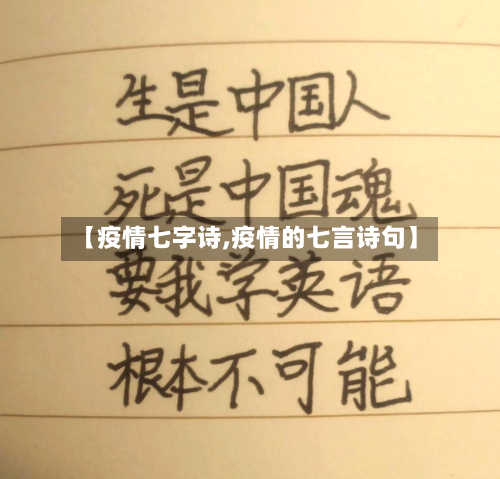 生是中国人
死是中国魂
【疫情七字诗,疫情的七言诗句】
要我学英语
根本不可能